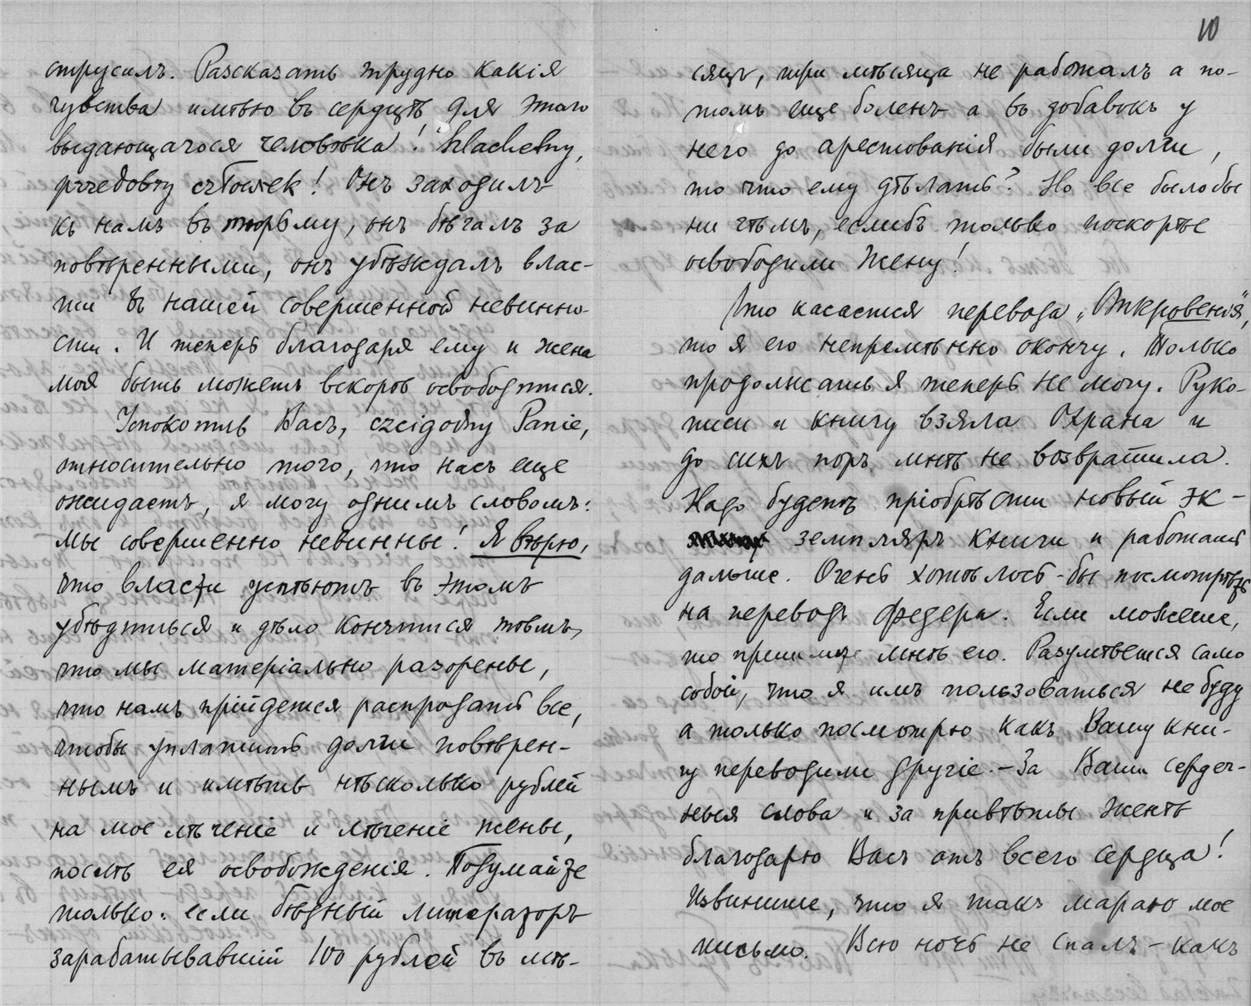 струсилъ. Разсказать трудно какія
чувства имѣю въ сердцѣ для этого
выдающагося человѣка! Szlachetny,
człowiek! Онъ заходилъ
къ намъ въ тюрьму, онъ бѣгалъ за
повѣренными, онъ убѣждалъ влас-
ти въ нашей совершенной невинно-
сти. И теперь благодаря ему и жена
моя быть можетъ вскорѣ освободится.
Успокоить Васъ, czcigodny Panie,
относительно того, что насъ еще
ожидаетъ, я могу однимъ словомъ:
мы совершенно невинны! Я вѣрю,
что власти успѣютъ въ этомъ
убѣдиться и дѣло кончится тѣмъ,
что мы матеріально разорены,
что намъ прійдется распродать все,
чтобы уплатить долги повѣрен-
нымъ и имѣть нѣсколько рублей
на мое лѣченіе и лѣченіе жены,
послѣ ея освобожденія. Подумайте
только: если бѣдный литераторъ
зарабатывавшій 100 рублей въ мѣ-
10
сяцъ, три мѣсяца не работалъ а по-
томъ еще боленъ а въ добавокъ у
него до арестованія были долги,
то что ему дѣлать? Но все было бы
ни чѣмъ, еслибъ только поскорѣе
освободили жену!
Что касается перевода „Откровенія",
то я его непремѣнно окончу. Только
продолжать я теперь не могу. Руко-
писи и книгу взяла Охрана и
до сихъ поръ мнѣ не возвратила.
Надо будетъ пріобрѣсти новый эк-
земпляръ книги и работать
дальше. Очень хотѣлось-бы посмотрѣть
на переводъ Федера. Если можете,
то пришлите мнѣ его. Разумѣется само
собой, что я имъ пользоваться не буду
а только посмотрю какъ Вашу кни-
гу переводили другіе. – За Ваши сердеч-
ныя слова и за привѣты женѣ
благодарю Васъ отъ всего сердца!
Извините, что я такъ мараю мое
письмо. Всю ночь не спалъ – какъ